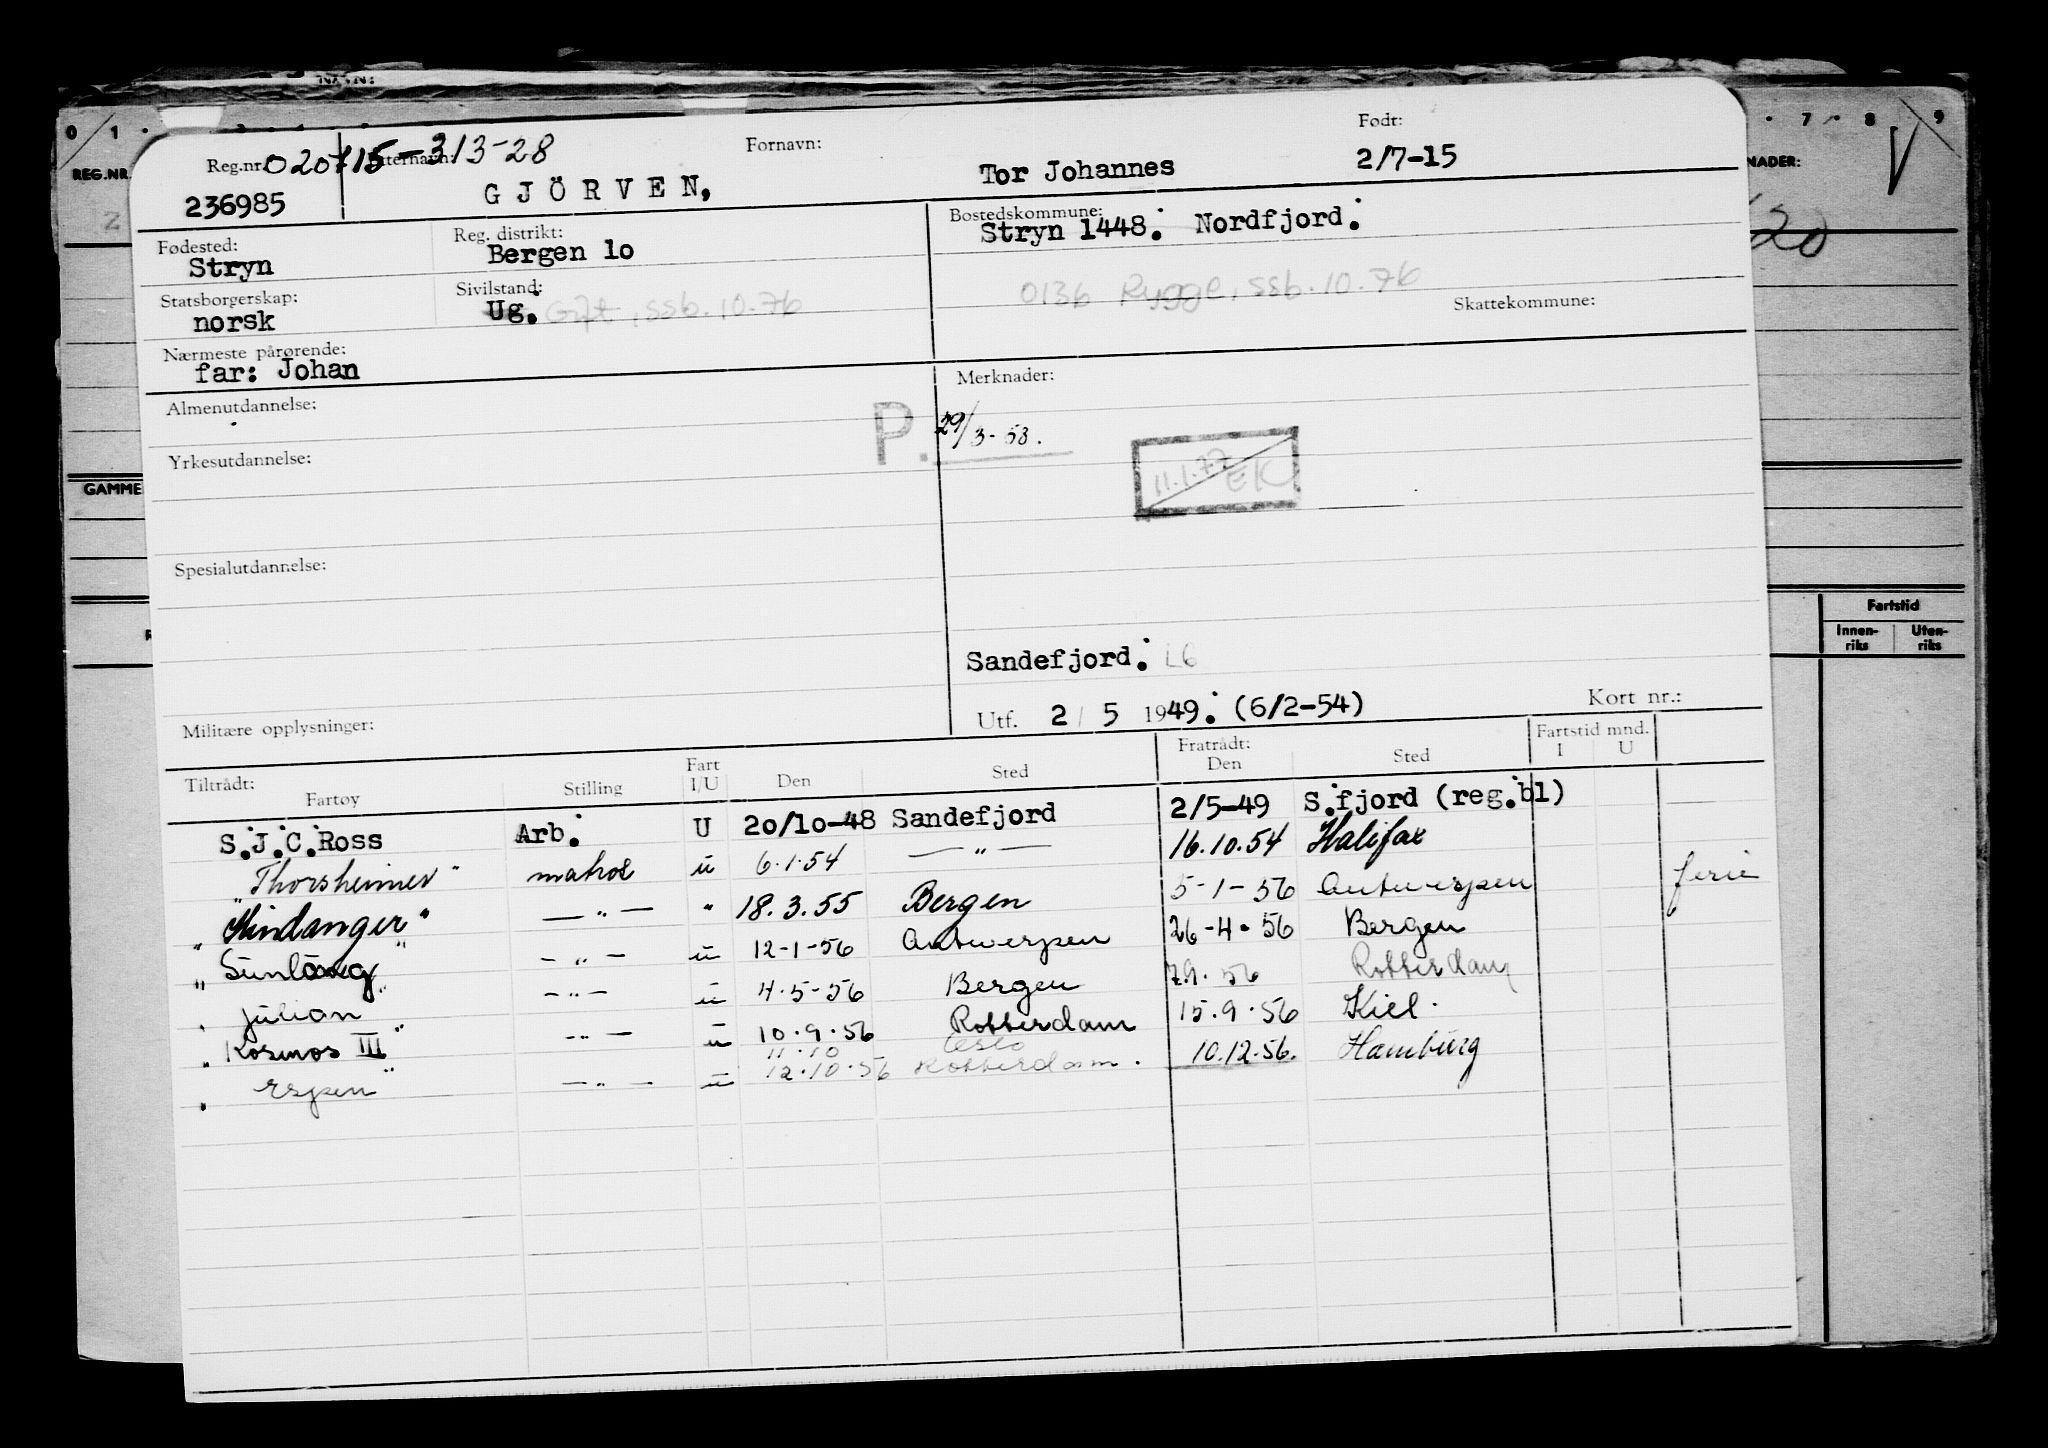 0 1 7 8 9
REG.NR. NADER:
20
GAMME
Fartstid
Innen- Uten-
riks riks
Reg.nr. 020715-313-28 Fornavn: Født:
236985 GJÖRVEN, Tor Johannes 2/7-15
Fødested: Reg. distrikt: Bostedskommune:
Stryn Bergen 10 Stryn 1448. Nordfjord.
Statsborgerskap: Sivilstand: 0136 Rygge, ssb. 10.76
norsk Ug. Gift, ssb. 10.76 Skattekommune:
Nærmeste pårørende:
far: Johan
Almenutdannelse: Merknader:
P. 29/3-53.
Yrkesutdannelse: 11.1.77 EK
Spesialutdannelse:
Sandefjord. L6
Militære opplysninger: Utf. 2/5 1949. (6/2-54) Kort nr.:
Tiltrådt: Fratrådt: Fartstid mnd.
Fartøy Stilling Fart I/U Den Sted Den Sted I U
S.J.C.Ross Arb. U 20/10-48 Sandefjord 2/5-49 S.fjord (reg.bl)
"Thorsheimer" matros u 6.1.54 — " — 16.10.54 Halifax
"Hindanger" — " — " 18.3.55 Bergen 5-1-56 Antwerpen ferie
"Sunlong" — " — u 12-1-56 Antwerpen 26-4-56 Bergen
" Julian " — " — u 4-5-56 Bergen 7.9.56 Rotterdam
"Kosmos III" — " — u 10.9.56 Rotterdam 15.9.56 Kiel.
11.10 Oslo
" Espen " — " — u 12.10.56 Rotterdam. 10.12.56. Hamburg